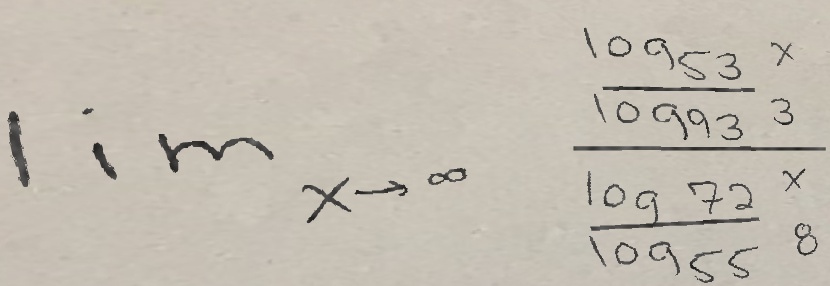 lim x→∞
log53 x
log93 3
log 72 x
log55 8